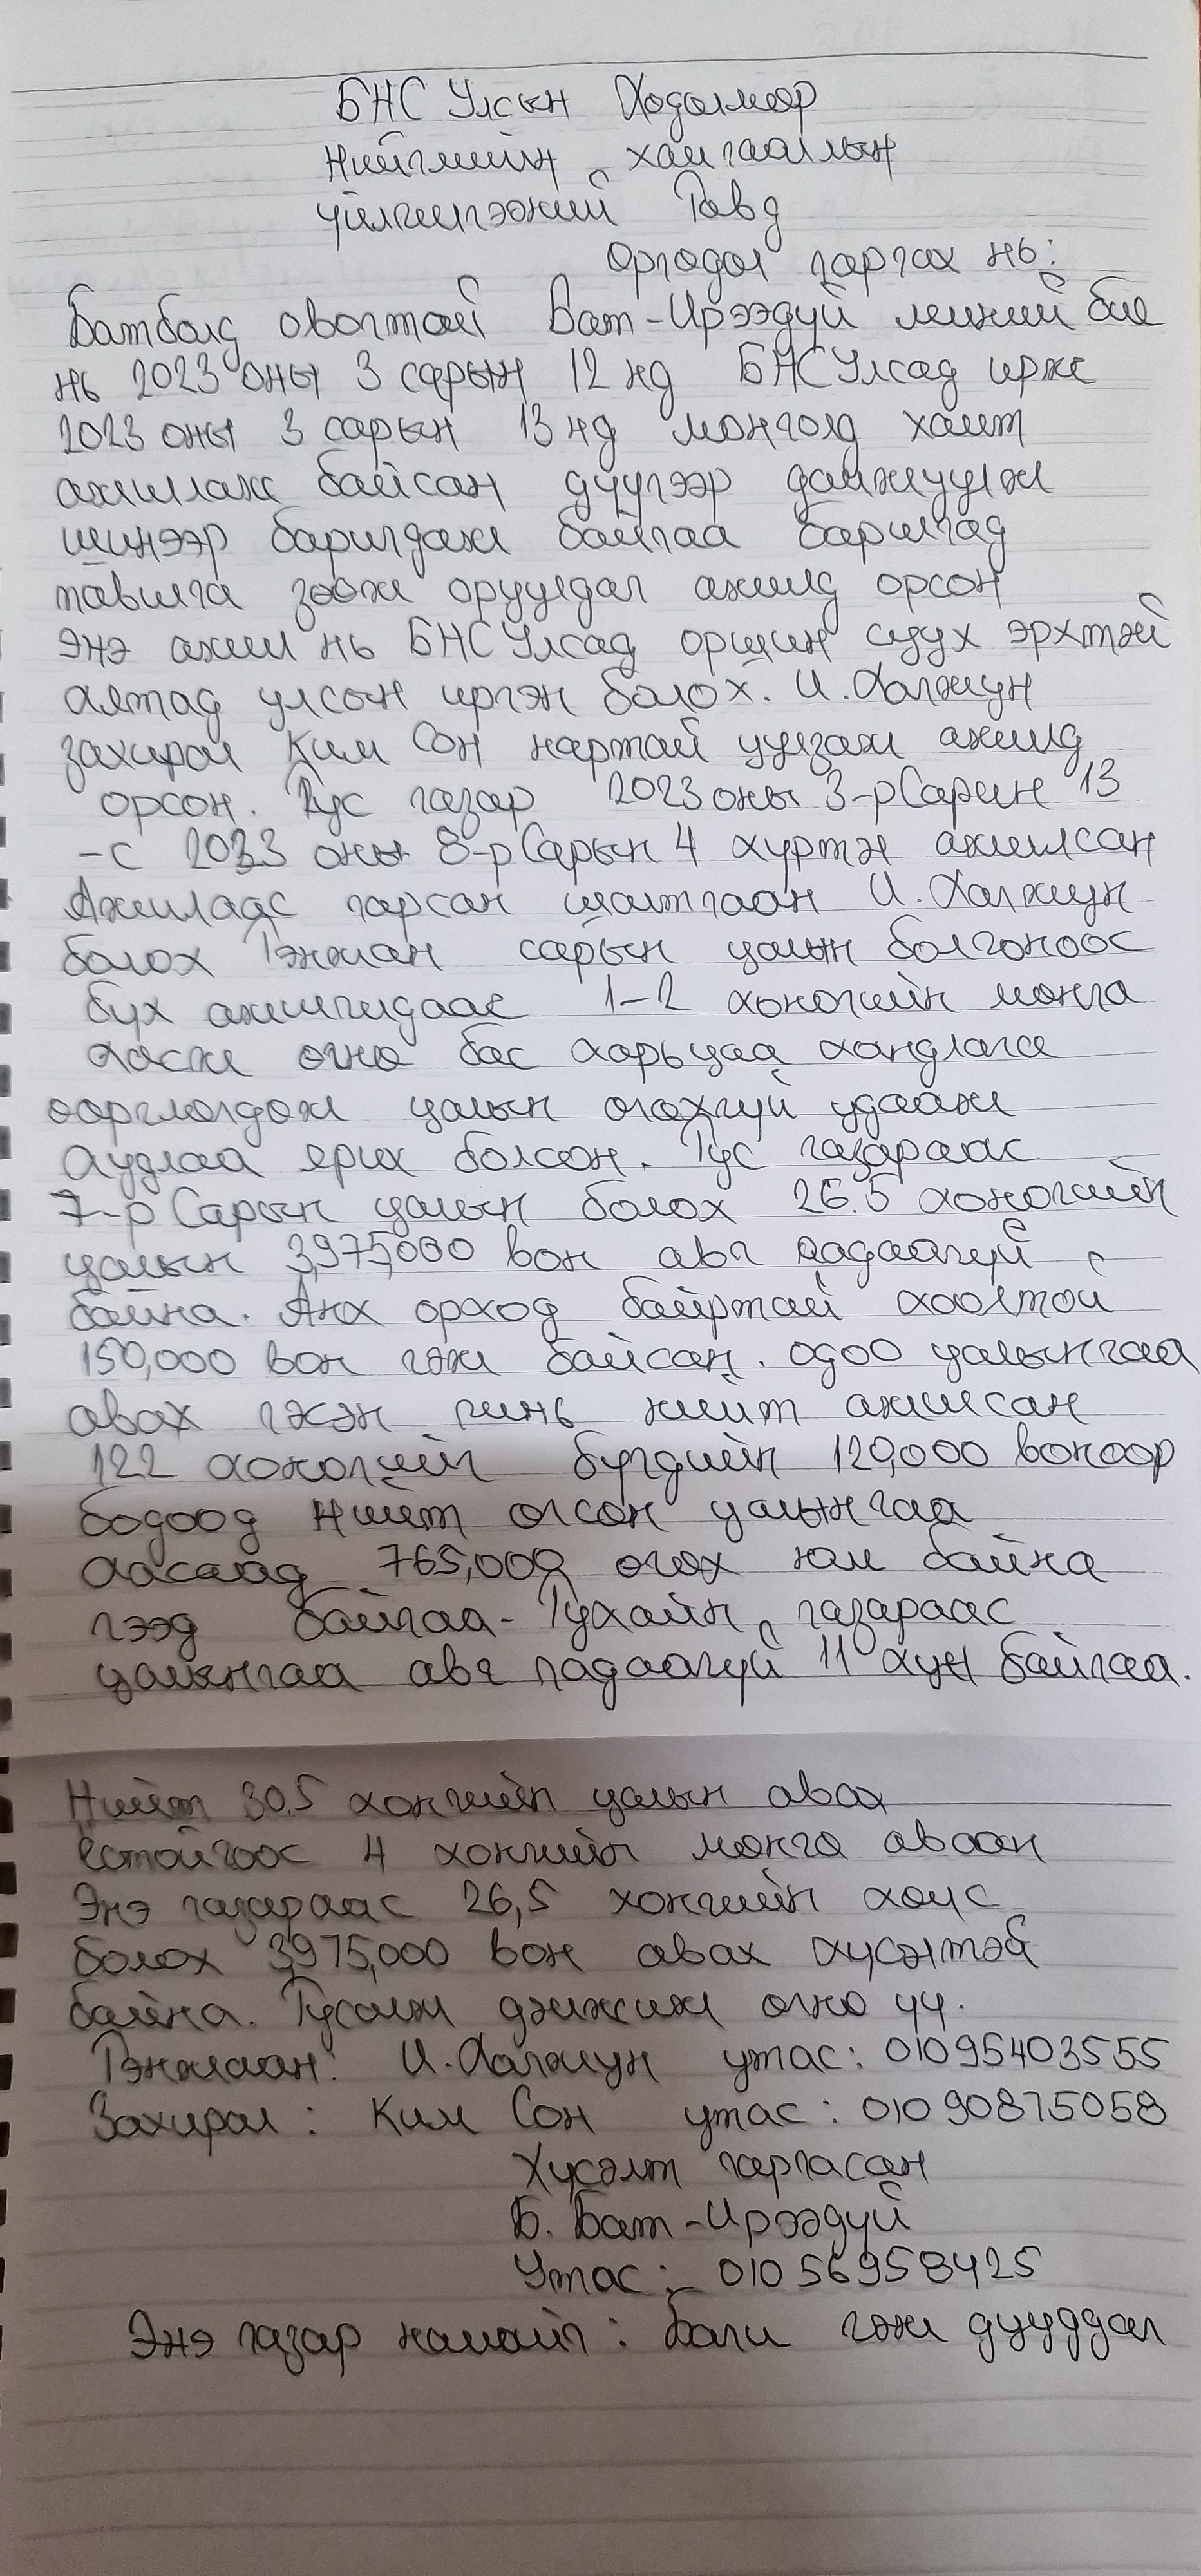 БНС Улсын Ходөлмөр
Нийгмийн хамгааллын
үйлчилгээний Төвд
Өргөдөл гаргах нь:
Батболд овогтой Бат-Ирээдүй миний бие
нь 2023 оны 3 сарын 12 нд БНСУлсад ирже
2023 оны 3 сарын 13 нд монголд хамт
ажиллаж байсан дүүгээр дамжуулж
шинээр баригдаж байгаа барилгад
тавилга зөөж оруулдаг ажилд орсон
энэ ажил нь БНСУлсад оршин суух эрхтэй
алтад улсын иргэн болох. И. Халжин
захирал Ким Сон нартай уулзаж ажилд
орсон. Тус газар 2023 оны 3-р Сарын 13
-с 2023 оны 8-р Сарын 4 хүртэл ажилсан
Ажилаас гарсан шалтгаан И. Халжин
болох Тэнжан сарын цалин болгоноос
бүх ажилчидаас 1-2 хоногийн мөнгө
хасж өгнө бас харьцаа хандлага
өөрчлөгдөж цалин өгөхгүй удааж
худлаа ярих болсон. Тус газараас
7-р Сарын цалин болох 26.5 хоногийн
цалин 3,975,000 вон авч чадаагүй
байна. Анх ороход байртай хоолтой
150,000 вон гэж байсан. одоо цалингаа
авах гэсэн чинь нийт ажилсан
122 хоногийг бүгдийн 120,000 воноор
бодоод Нийт өгсөн цалингаа
хасаад 765,000 өгөх юм байна
гээд байгаа- Тухайн газараас
цалингаа авч чадаагүй 11 хүн байгаа.
Нийт 30.5 хонгийн цалин авах
ёстойгоос 4 хонгийн мөнгө авсан
Энэ газараас 26,5 хонгийн хөлс
болох 3,975,000 вон авах хүсэлтэй
байна. Тусалж дэмжиж өгнө үү.
Тэнжаан: И. Халжин утас: 01095403555
Захирал: Ким Сон утас: 01090875058
Хүсэлт гаргасан
Б. Бат-Ирээдүй
Утас: 01056958425
Энэ газар намайг: Бали гэж дууддаг